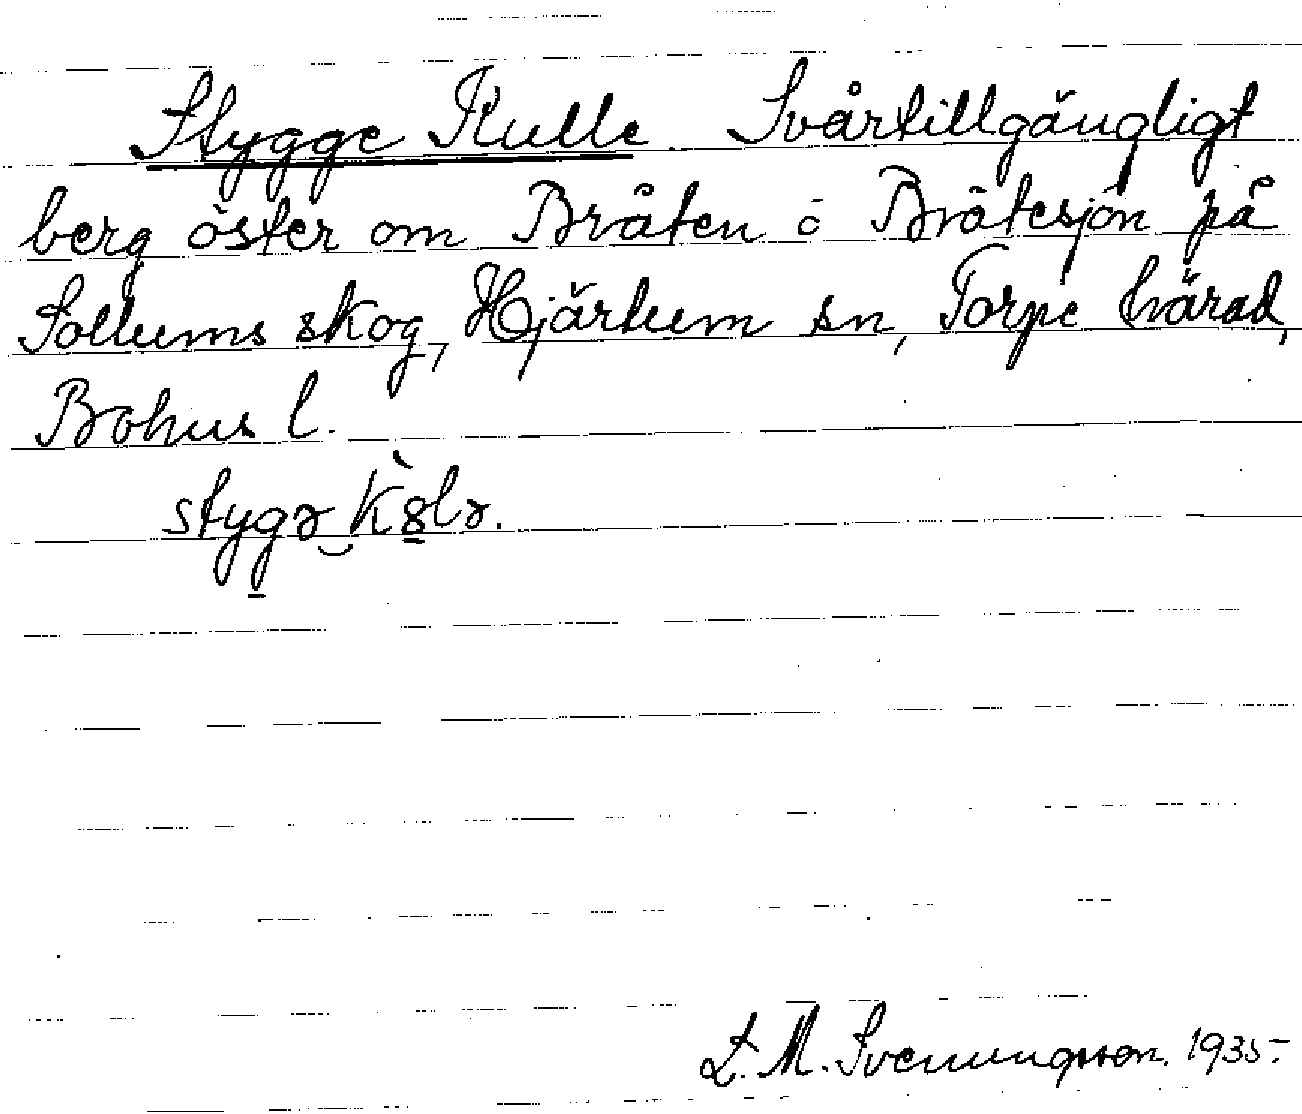 Stygge Kulle Svårtillgängligt
berg öster om Bråten o Bråtesjön på
Sollums skog, Hjärtum sn, Torpe härad,
Bohus l.
stygə k8lə.
L. M. Svenungsson. 1935.